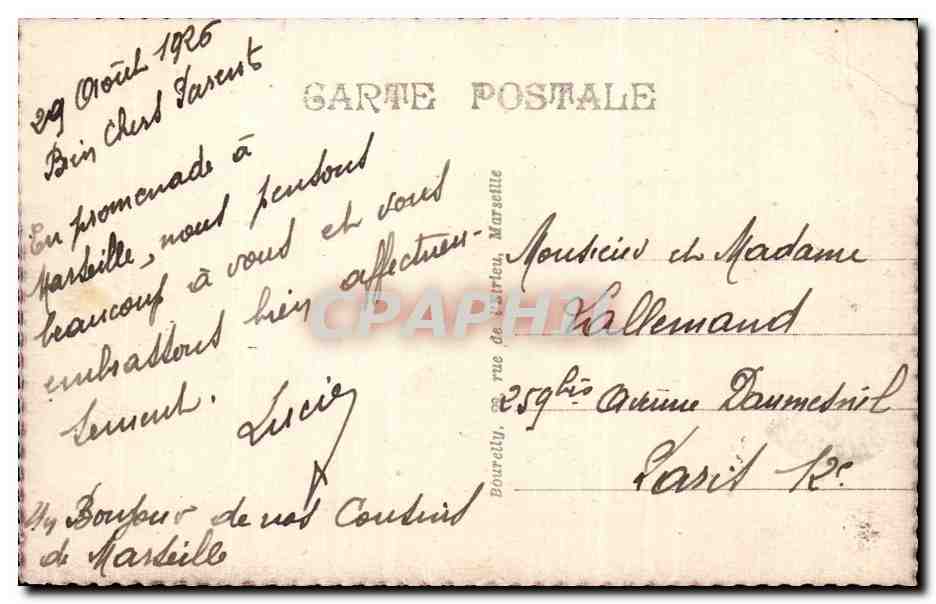 CARTE POSTALE
29 Août 1926
Bien Chers Parents
En promenade à
Marseille, nous pensons
beaucoup à vous et vous
embrassons bien affectueu-
sement.
Lucie
Un Bonjour de nos Cousins
de Marseille
Bourelly, rue de l'Etrieu, Marseille
Monsieur et Madame
Lallemand
259 bis Avenue Daumesnil
Paris 12e
CPAPHIL